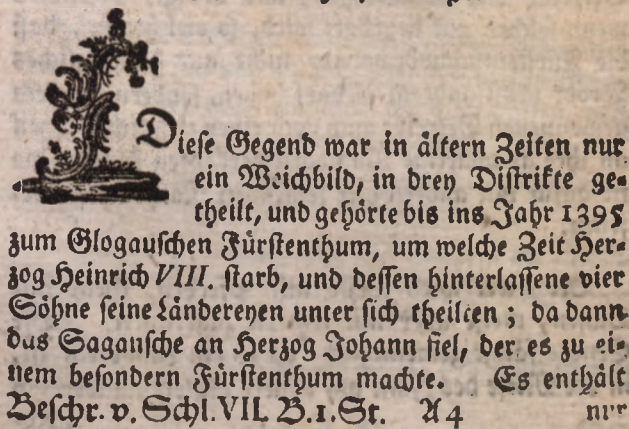 Diese Gegend war in ältern Zeiten nur
ein Weichbild, in drey Distrikte ge-
theilt, und gehörte bis ins Jahr 1395
zum Glogauschen Fürstenthum, um welche Zeit Her-
zog Heinrich VIII. starb, und dessen hinterlassene vier
Söhne seine Ländereyen unter sich theilten; da dann
das Sagansche an Herzog Johann fiel, der es zu ei-
nem besondern Fürstenthum machte. Es enthält
Beschr. v. Schl. VII. B. 1. St. A4 nur